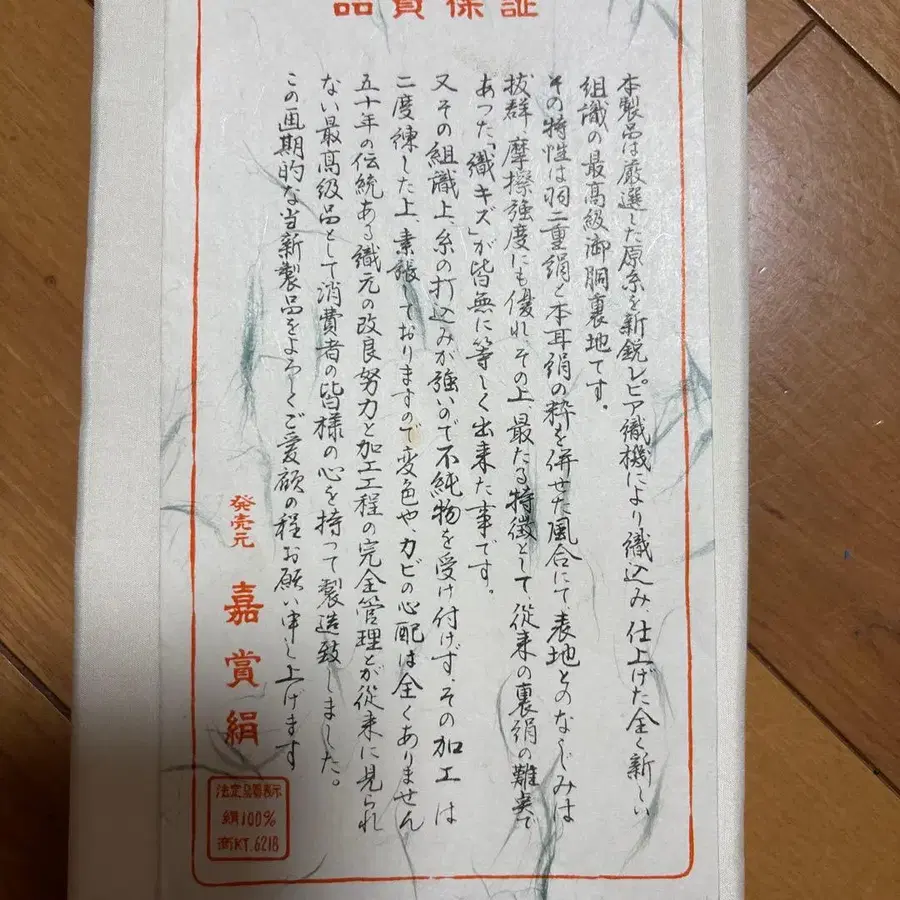 品質保証
本製品は厳選した原糸を新鋭レピア織機により織込み、仕上げた全く新しい
組識の最高級御胴裏地です。
その特性は羽二重絹と本耳絹の粋を併せた風合にて、表地とのなじみは
抜群、摩擦強度にも優れ、その上、最たる特徴として、従来の裏絹の難点で
あった「織キズ」が皆無に等しく出来た事です。
又その組識上、糸の打込みが強いので不純物を受け付けず、その加工は
二度練した上、素張しておりますので変色や、カビの心配は全くありません
五十年の伝統ある織元の改良努力と加工工程の完全管理とが従来に見られ
ない最高級品として消費者の皆様の心を持って製造致しました。
この画期的な当新製品をよろしくご愛顧の程お願い申し上げます
発売元 嘉賞絹
法定品質表示
絹100%
商KT.6218